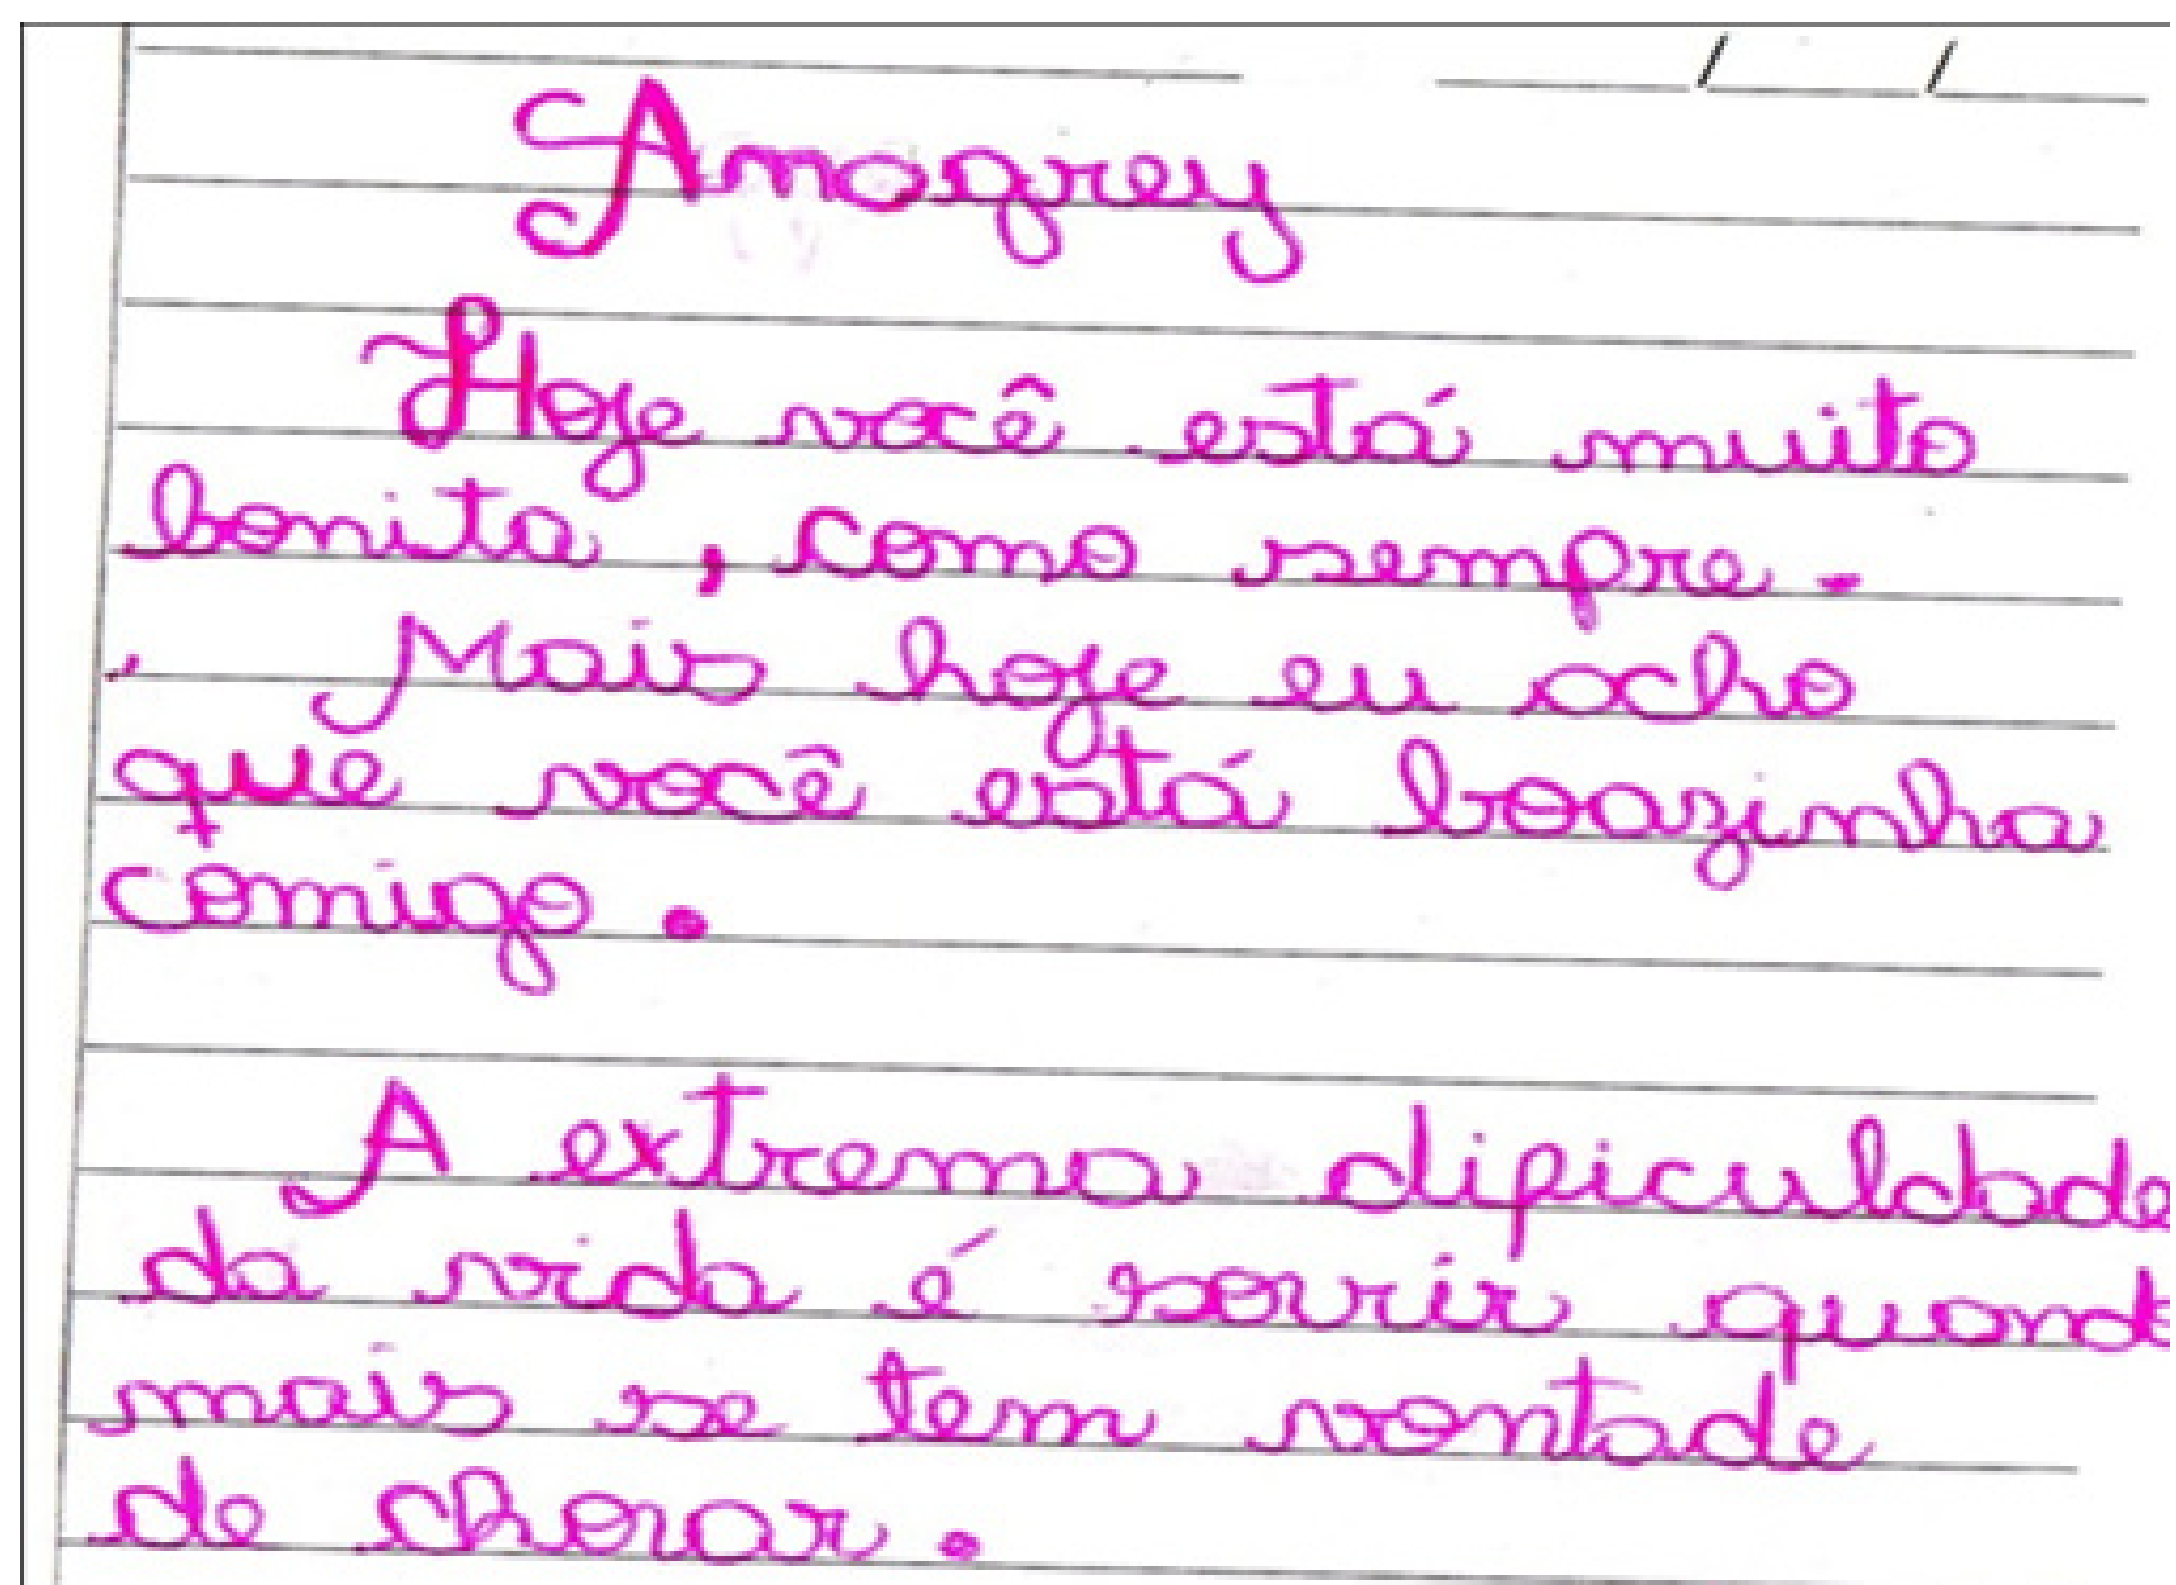 Amagrey
Hoje você está muito
bonita, como sempre.
Mais hoje eu acho
que você está boazinha
comigo.
A extrema dificuldade
da vida é sorrir quando
mais se tem vontade
de chorar.